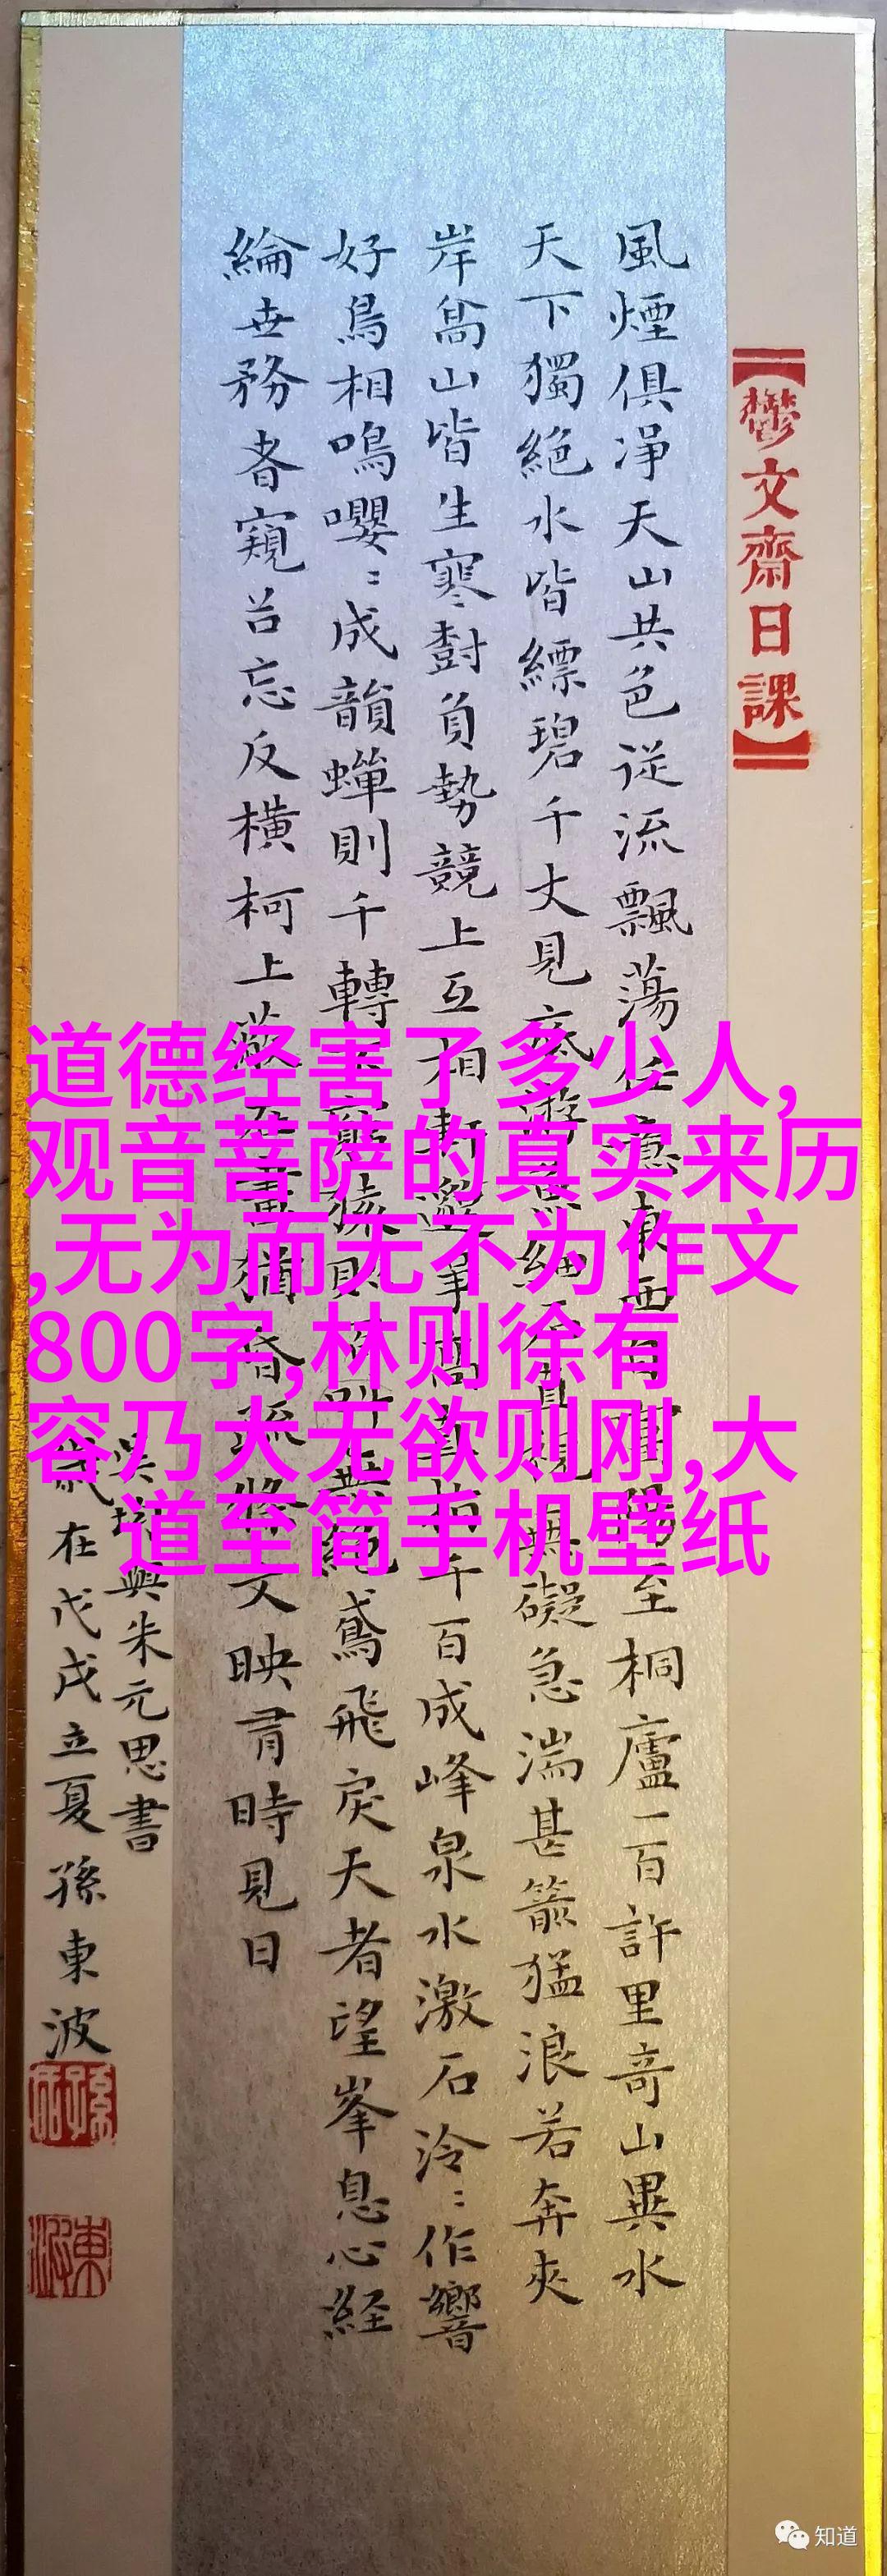 【鬱文齋日課】
風煙俱淨天山共色從流飄蕩任意東西自富陽至桐廬一百許里竒山異水
天下獨絕水皆縹碧千丈見底游魚細石直視無礙急湍甚箭猛浪若奔夾
岸高山皆生寒樹負勢競上互相軒邈爭高直指千百成峰泉水激石泠〻作響
好鳥相鳴嚶〻成韻蟬則千轉不窮猿則百叫無絕鳶飛戾天者望峯息心経
綸世務者窺谷忘反橫柯上蔽在晝猶昏疏條交映有時見日
吳均與朱元思書
歲在戊戌立夏孫東波
道德经害了多少人,
观音菩萨的真实来历
,无为而无不为作文
800字,林则徐有
容乃大无欲则刚,大
道至简手机壁纸
知道